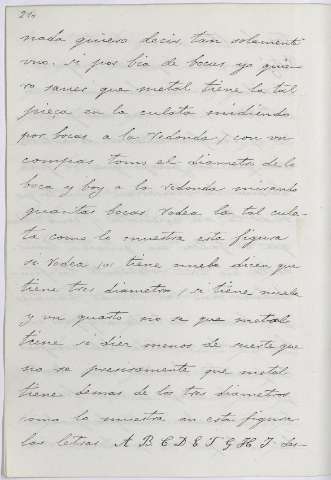 214
nada quiero decir tan solamente
uno. si por bia de bocas yo quie-
ro saver que metal tiene la tal
pieça en la culata midiendo
por bocas a la redonda, con un
compas tomo el diametro de la
boca y boy a la redonda mirando
quantas bocas rodea la tal cula-
ta como lo muestra esta figura
si rodea, o tiene nueba dicen que
tiene tres diametros, si tiene nueba
y un quarto no se que metal
tiene si diez menos de suerte que
no se precisamente que metal
tiene demas de los tres diametros
como lo muestra en esta figura
las letras A B C D E F G H I las-